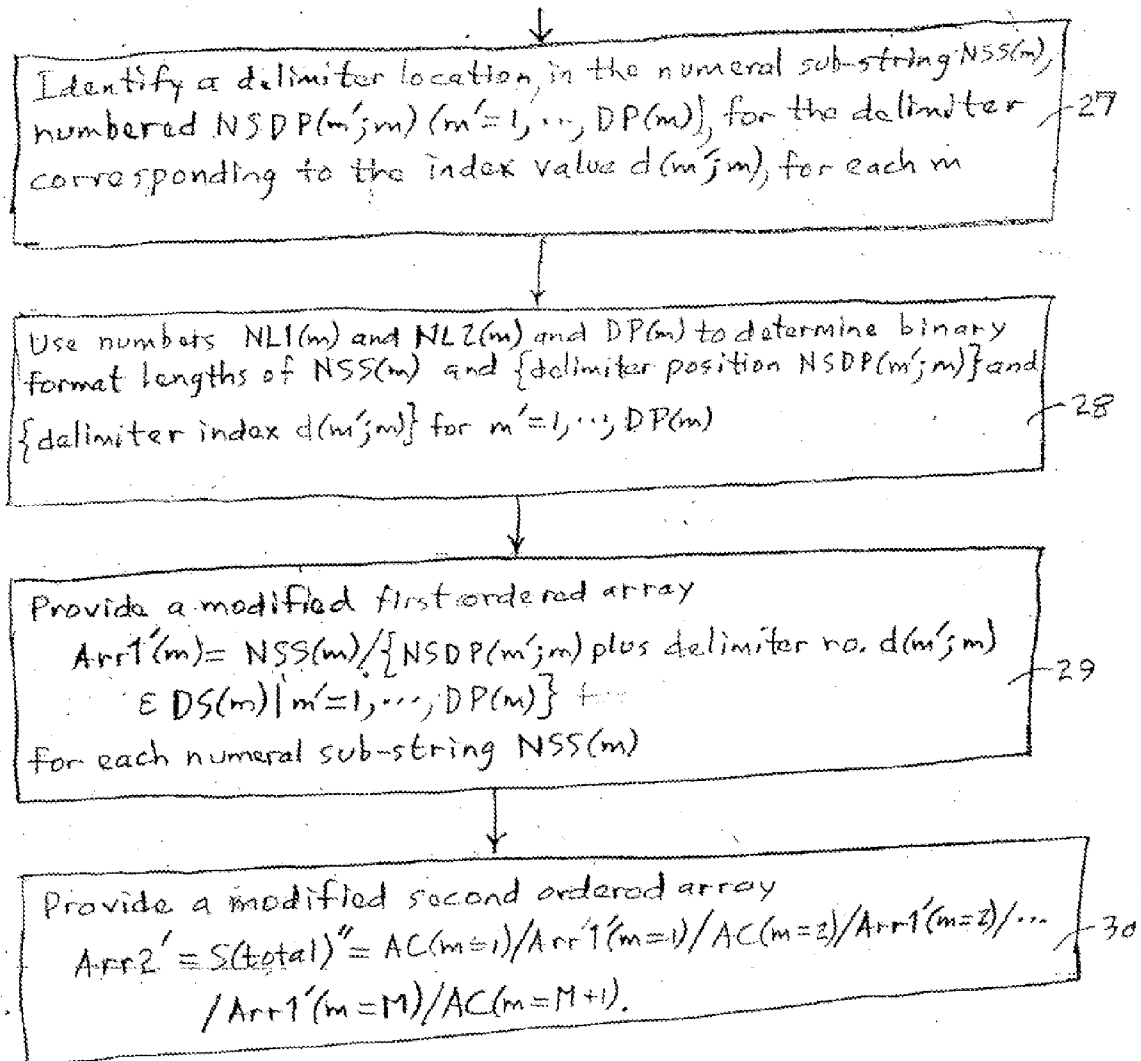 Identify a delimiter location, in the numeral sub-string NSS(m),
numbered NSDP(m′;m) (m′=1, ···, DP(m)), for the delimiter
corresponding to the index value d(m′;m), for each m
27
Use numbers NL1(m) and NL2(m) and DP(m) to determine binary
format lengths of NSS(m) and {delimiter position NSDP(m′;m)} and
{delimiter index d(m′;m)} for m′=1, ···, DP(m)
28
Provide a modified first ordered array
Arr1′(m)= NSS(m)/{NSDP(m′;m) plus delimiter no. d(m′;m)
ε DS(m)|m′=1, ···, DP(m)}
for each numeral sub-string NSS(m)
29
Provide a modified second ordered array
Arr2′ = S(total)″ = AC(m=1)/Arr1′(m=1)/AC(m=2)/Arr1′(m=2)/···
/Arr1′(m=M)/AC(m=M+1).
30